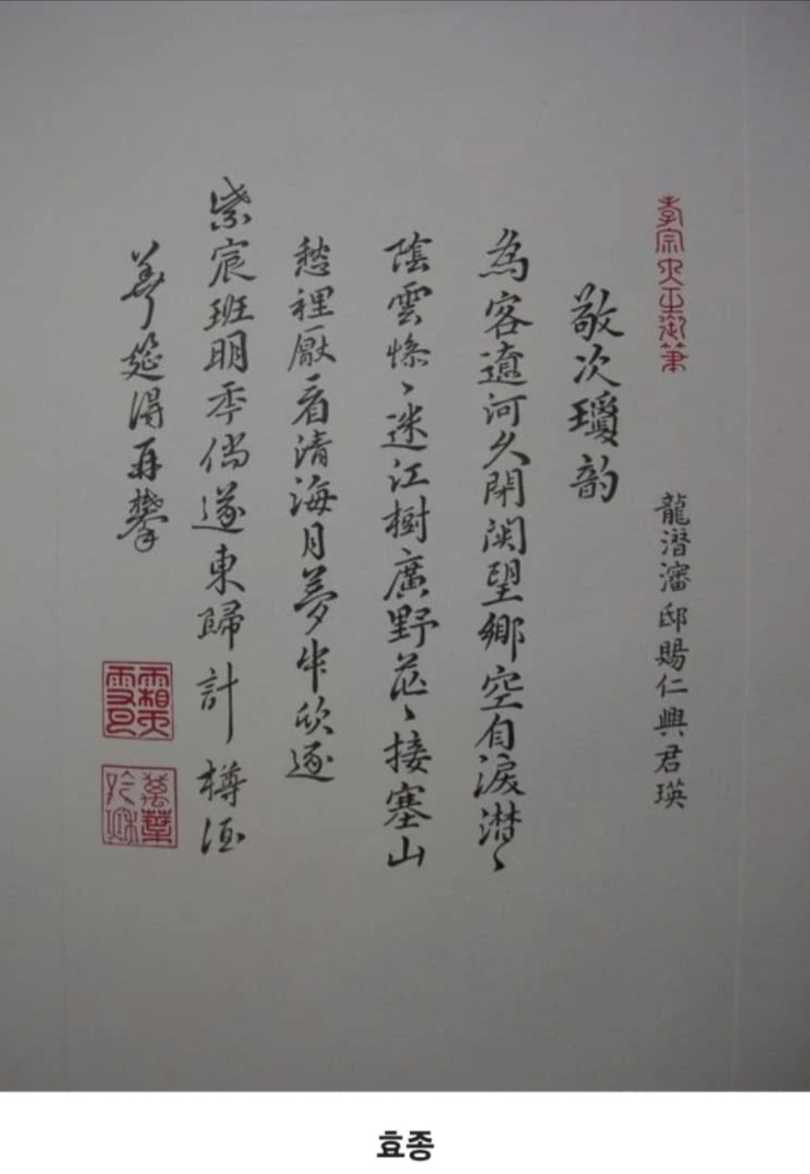 孝宗大王御筆
龍潛瀋邸賜仁興君瑛
敬次瓊韵
為客遼河久閉関望鄉空自淚潸〻
陰雲惨〻迷江樹廣野茫〻接塞山
愁裡厭看清海月夢中欣逐
紫宸班明年倘遂東歸計樽酒
華筵得再攀
효종